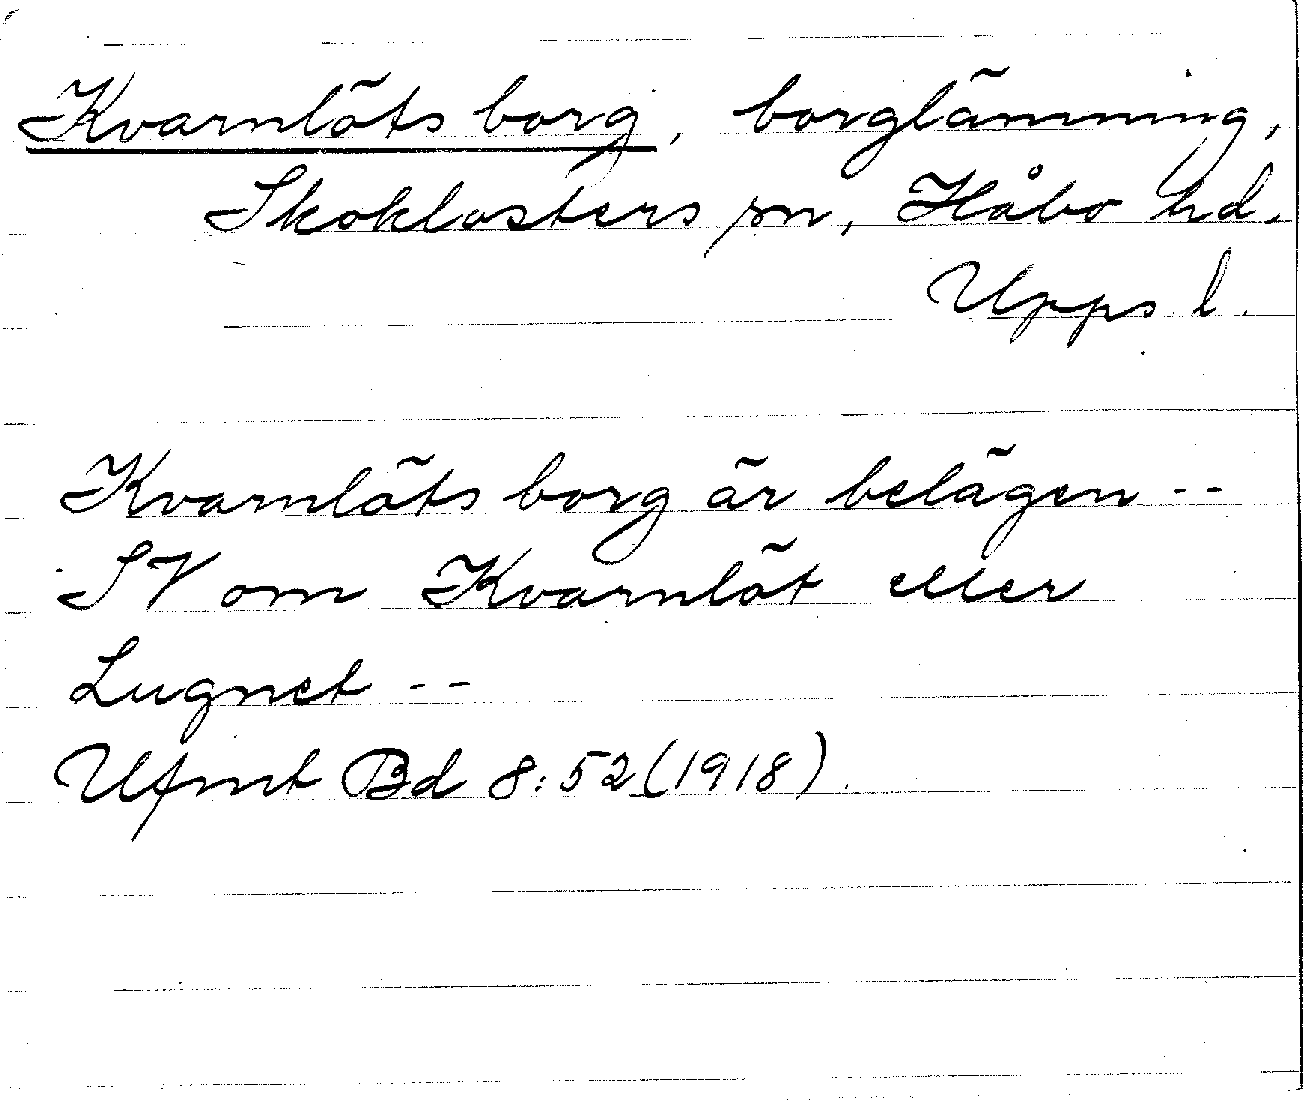 Kvarnlöts borg, borglämning,
Skoklosters sn, Håbo hd.
Upps l.
Kvarnlöts borg är belägen --
SV om Kvarnlöt eller
Lugnet --
Ufmt Bd 8:52 (1918)